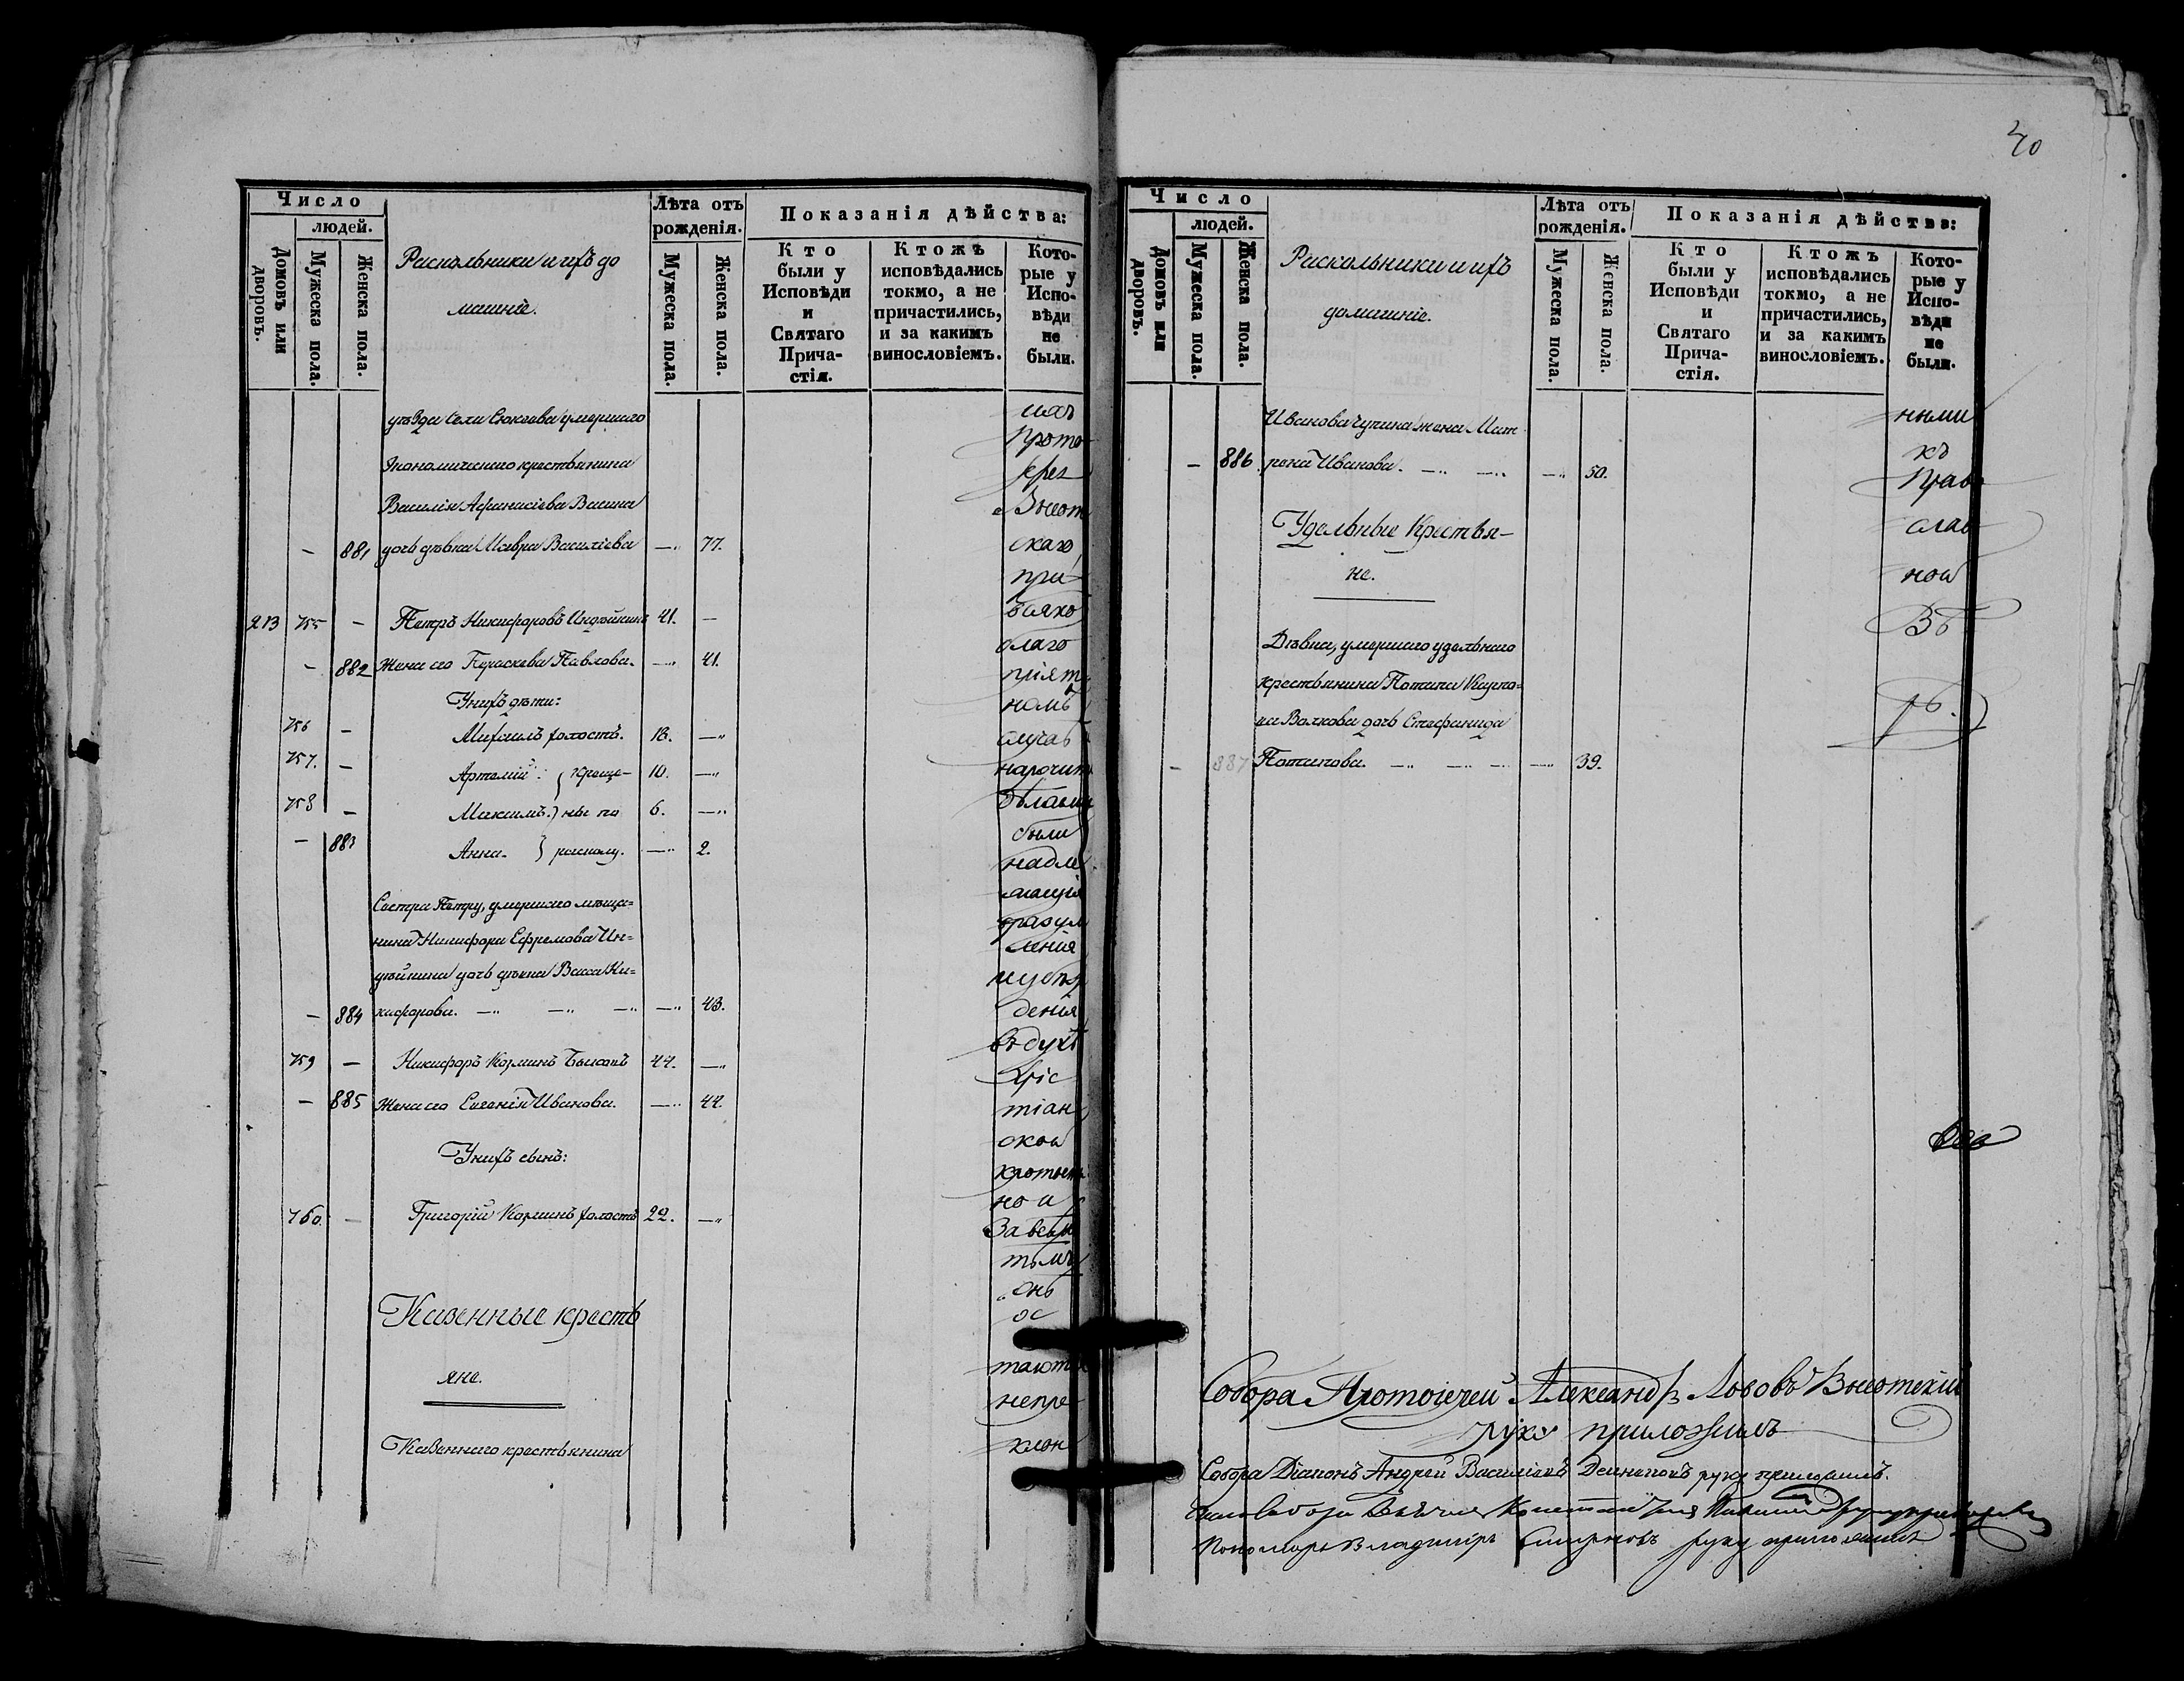 Число
людей.
Домовъ или дворовъ.
Мужеска пола.
Женска пола.
Раскольники и ихъ до
машніе.
Лѣта отъ рожденія.
Мужеска пола.
Женска пола.
Показанія дѣйства:
Кто были у Исповѣди и Святаго Прича-
стія.
Ктожъ исповѣдались токмо, а не причастились, и за какимъ винословіемъ.
Кото-
рые у Испо-
вѣди не были.
уѣзда села умершаго
Экономическаго крестьянина
Василія Афанасіева Васина
— 881 дочь дѣвка Мавра Васильева —" 77.
213 755 — Петръ Никифоровъ Индѣйкинъ 41. —
— 882 Жена его Параскева Павлова. —" 41.
У нихъ дѣти:
756 — Михаилъ холостъ. 18. —"
757. — Артемій: креще- 10. —"
758 — Максимъ. ны по 6. —"
— 883 Анна. расколу. —" 2.
Сестра Петру, умершаго мѣща=
нина Никифора Ефремова Ин=
дѣйкина дочь дѣвка Васса Ни=
— 884 кифорова. —" —" —" —" 43.
759 — Никифоръ Козминъ Быковъ 44. —"
— 885 Жена его Евгенія Иванова. —" 44.
У нихъ сынъ:
760. — Григорій Козминъ холостъ 22. —"
Казенные кресть
яне.
Казеннаго крестьянина
прото
скаго
при
благо
пріят
номъ
случаѣ
были
надле
жащія
вразум
ленія
убѣж
денія
въ духѣ
Хріс
тіан
ской
но и
за всѣм
тѣмъ
онѣ
ос
таютс
непре
клон
40
Число
людей.
Домовъ или дворовъ.
Мужеска пола.
Женска пола.
Раскольники и ихъ
домашніе.
Лѣта отъ рожденія.
Мужеска пола.
Женска пола.
Показанія дѣйства:
Кто были у Исповѣди и Святаго Прича-
стія.
Ктожъ исповѣдались токмо, а не причастились, и за какимъ винословіемъ.
Кото-
рые у Испо-
вѣди не были.
Иванова жена Мат
— 886 рена Иванова. —" —" —" 50.
Удѣльные Крестья-
не.
Дѣвка, умершаго удѣльнаго
крестьянина Потапа Карпо=
ва Волкова дочь Стефанида
— 887 Потапова. —" —" —" —" 39.
ными
къ
Право
слав
ной
Собора Протоіерей Александръ Высотскій
руку приложилъ
Собора Діаконъ Андрей Васильевъ руку приложилъ.
Пономарь Владиміръ Смирновъ руку приложилъ